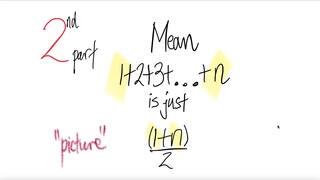 2nd part
Mean
1+2+3+...+n
is just
"picture"
(1+n)
2